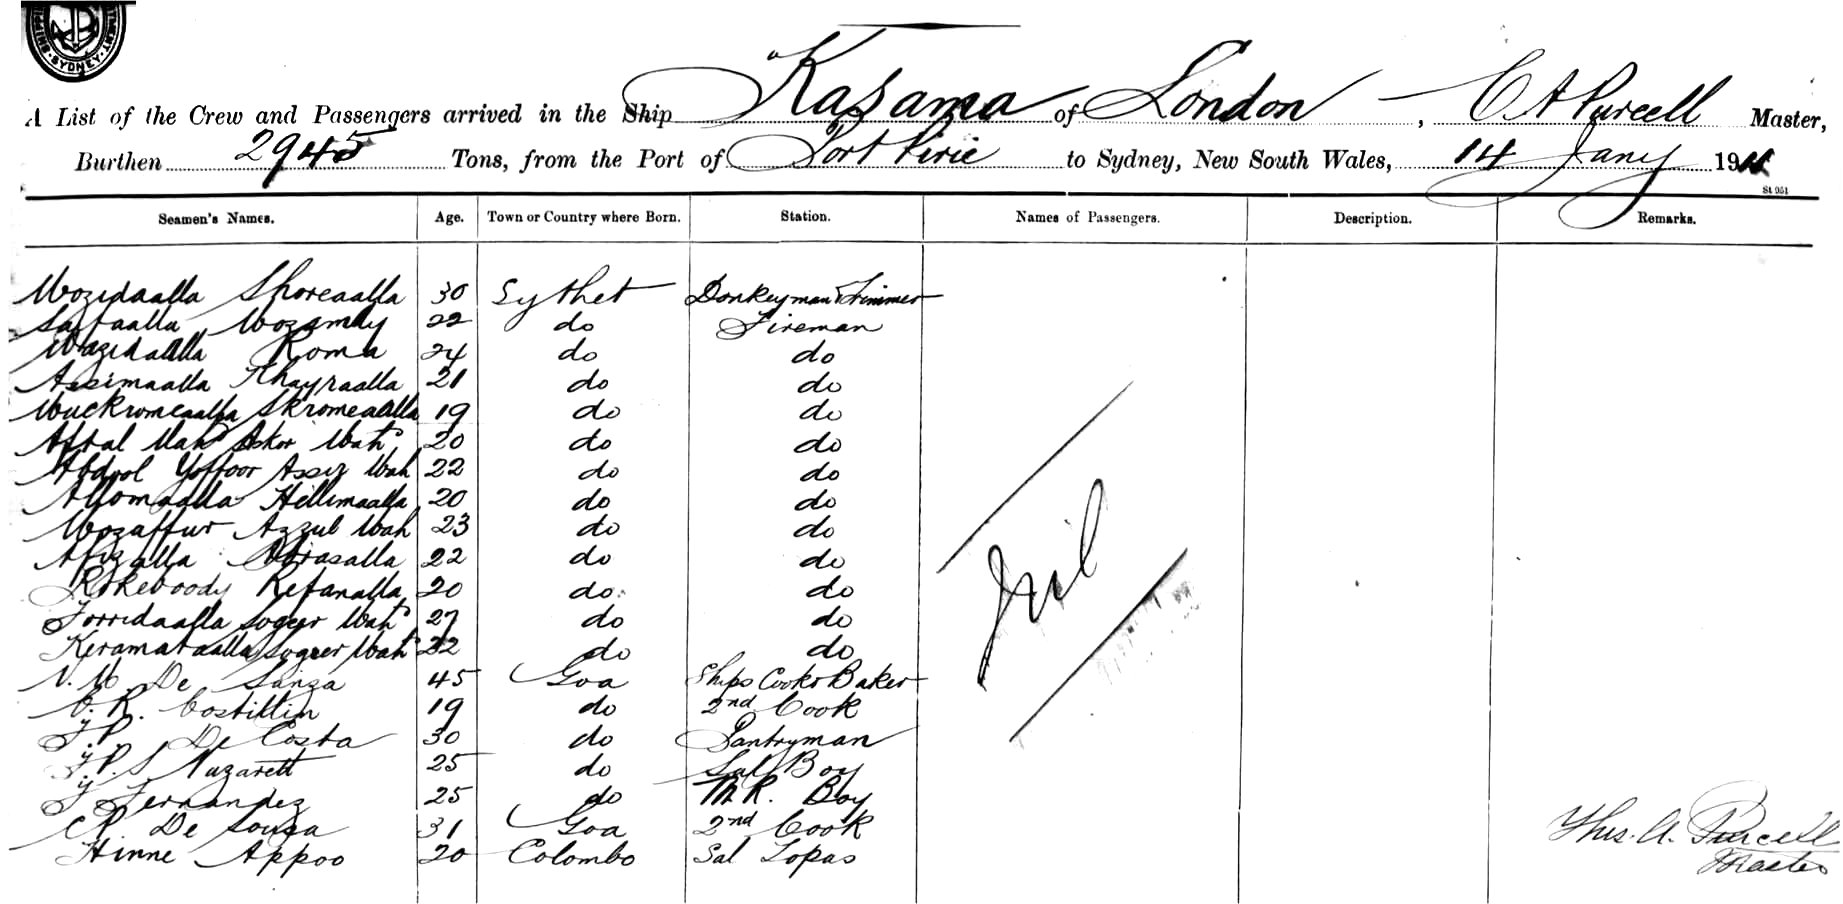 SYDNEY
A List of the Crew and Passengers arrived in the Ship Kasama of London, C A Purcell Master,
Burthen 2945 Tons, from the Port of Port Pirie to Sydney, New South Wales, 14 Jany 1911
St 951
Seamen's Names. Age. Town or Country where Born. Station. Names of Passengers. Description. Remarks.
Mozidaalla Shoreaalla 30 Sythet Donkeyman & Trimmer
Mozamdy 22 do Fireman
Wazidaalla Roma 24 do do
Assimaalla Khayraalla 21 do do
Muckromeaalla Skromeaalla 19 do do
Aftal Mahd Askor Mahd 20 do do
Abdool Yoffoor Assiz Mah 22 do do
Allomaalla Hellimaalla 20 do do
Mozaffur Azzul Mah 23 do do
Afizalla Abrasalla 22 do do
Rokeboody Refanalla 20 do do
Forridaalla Sogeer Mahd 27 do do
Keramataalla Sogeer Mahd 22 do do
Nil
De Sanza 45 Goa Ships Cook & Baker
C. R. Costillin 19 do 2nd Cook
De Costa 30 do Pantryman
Nazarett 25 do Sal Boy
Fernandez 25 do M R. Boy
De Souza 31 Goa 2nd Cook
Hinne Appoo 20 Colombo Sal Topas
Thos. A. Purcell
Master